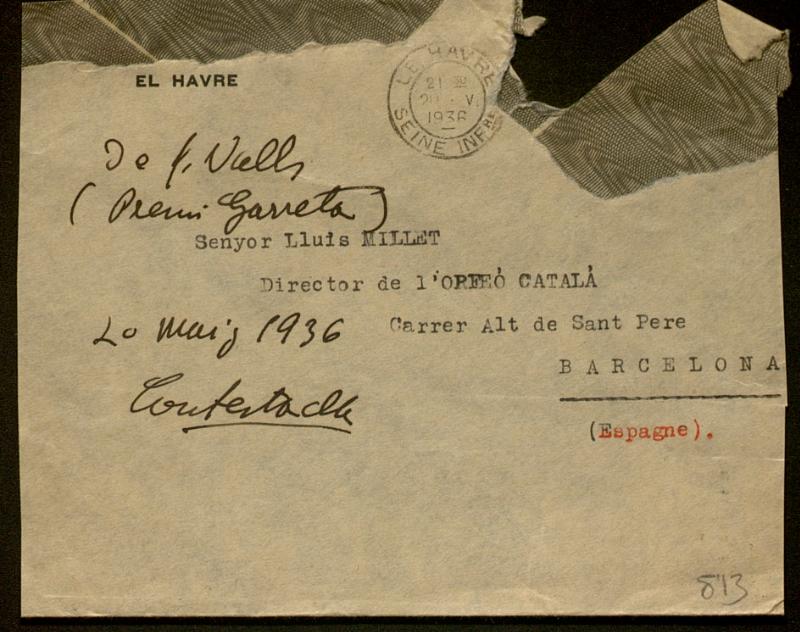 EL HAVRE
LE HAVRE
21 30
20 - V
1936
SEINE INFRE
De J. Valls
(Premi Garreta)
Senyor Lluis MILLET
Director de l'ORFEÓ CATALÁ
20 Maig 1936
Carrer Alt de Sant Pere
BARCELONA
Contestada
(Espagne).
813